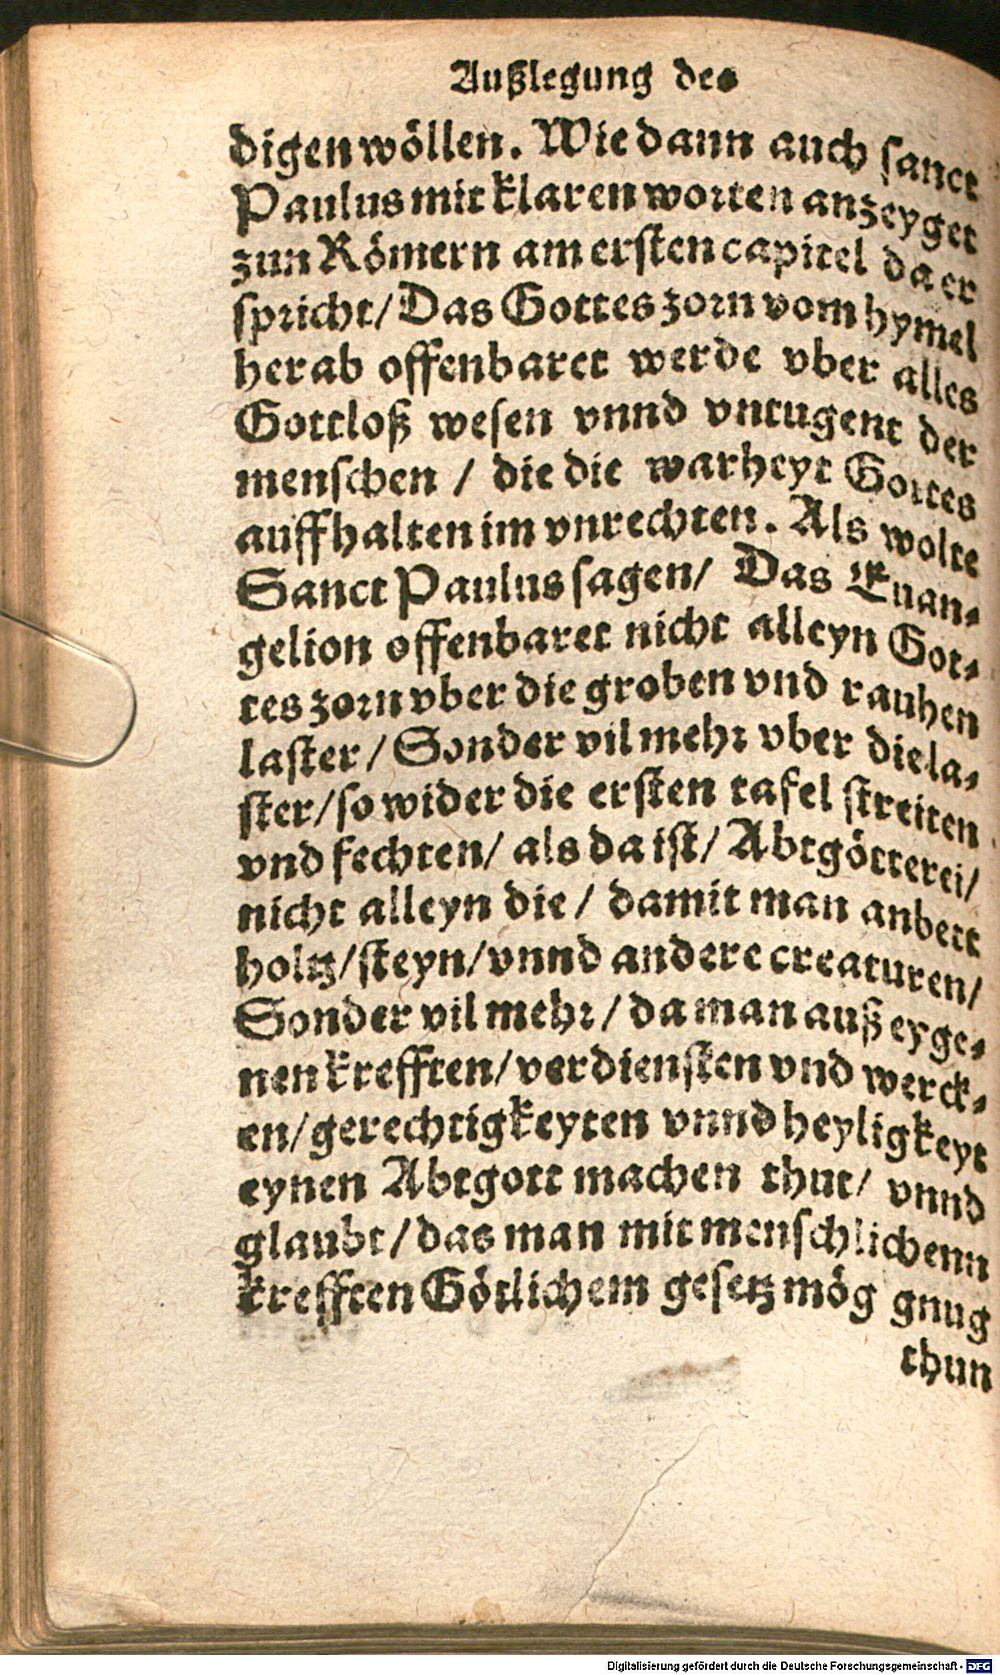 Außlegung des
digen wöllen. Wie dann auch sanct
Paulus mit klaren worten anzeyget
zun Römern am ersten capitel da er
spricht/ Das Gottes zorn vom hymel
herab offenbaret werde vber alles
Gottloß wesen vnnd vntugent der
menschen / die die warheyt Gottes
auffhalten im vnrechten. Als wolte
Sanct Paulus sagen/ Das Euan-
gelion offenbaret nicht alleyn Got-
tes zorn vber die groben vnd rauhen
laster/ Sonder vil mehr vber die la-
ster/ so wider die ersten tafel streiten
vnd fechten/ als da ist/ Abtgötterei/
nicht alleyn die/ damit man anbett
holtz/ steyn/ vnnd andere creaturen/
Sonder vil mehr/ da man auß eyge-
nen krefften/ verdiensten vnd werck-
en/ gerechtigkeyten vnnd heyligkeyt
eynen Abtgott machen thut/ vnnd
glaubt/ das man mit menschlichenn
krefften Götlichem gesetz mög gnug
thun
Digitalisierung gefördert durch die Deutsche Forschungsgemeinschaft - DFG